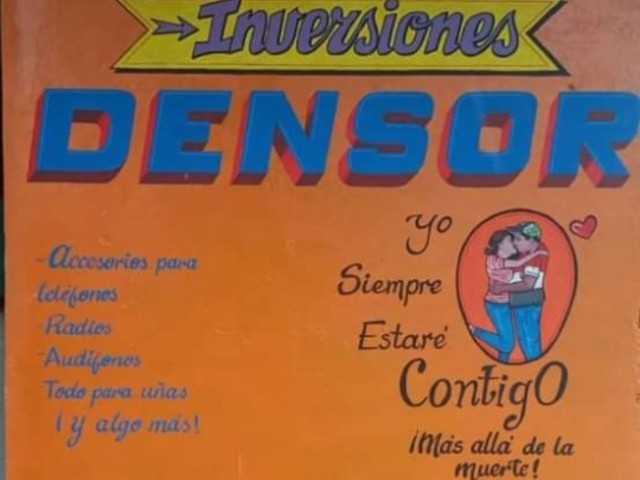 Inversiones
DENSOR
-Accesorios para
teléfonos
-Radios
-Audífonos
-Todo para uñas
¡Y algo más!
Yo
Siempre
Estaré
Contigo
¡Más allá de la
muerte!